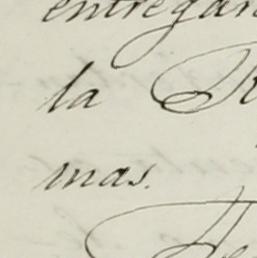 entregar
la R
mas.